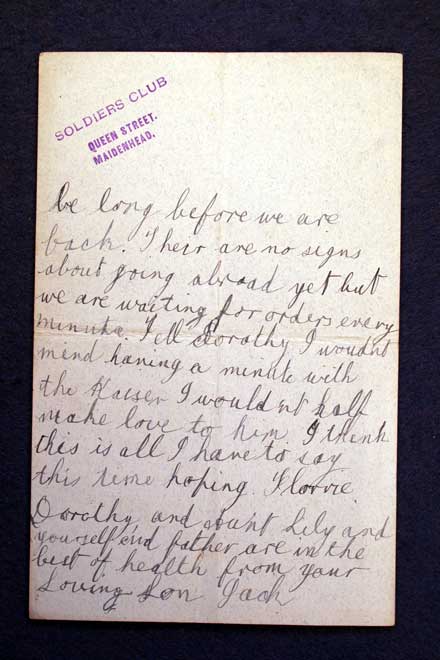 SOLDIERS CLUB
QUEEN STREET.
MAIDENHEAD.
be long before we are
back. Their are no signs
about going abroad yet but
we are waiting for orders every
minute. Tell Dorothy I wouldnt
mind having a minute with
the Kaiser I would nt half
make love to him. I think
this is all I have to say
this time hoping. Florrie.
Dorothy and Aunt Lily and
yourself and father are in the
best of health from your
Loving Son Jack